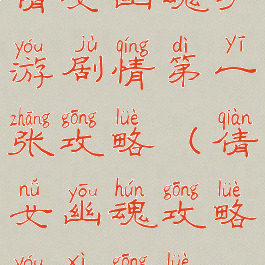 yóu jù qíng dì yī
游剧情第一
zhāng gōng lüè qiàn
张攻略(倩
nǚ yōu hún gōng lüè
女幽魂攻略
yóu xì gōng lüè